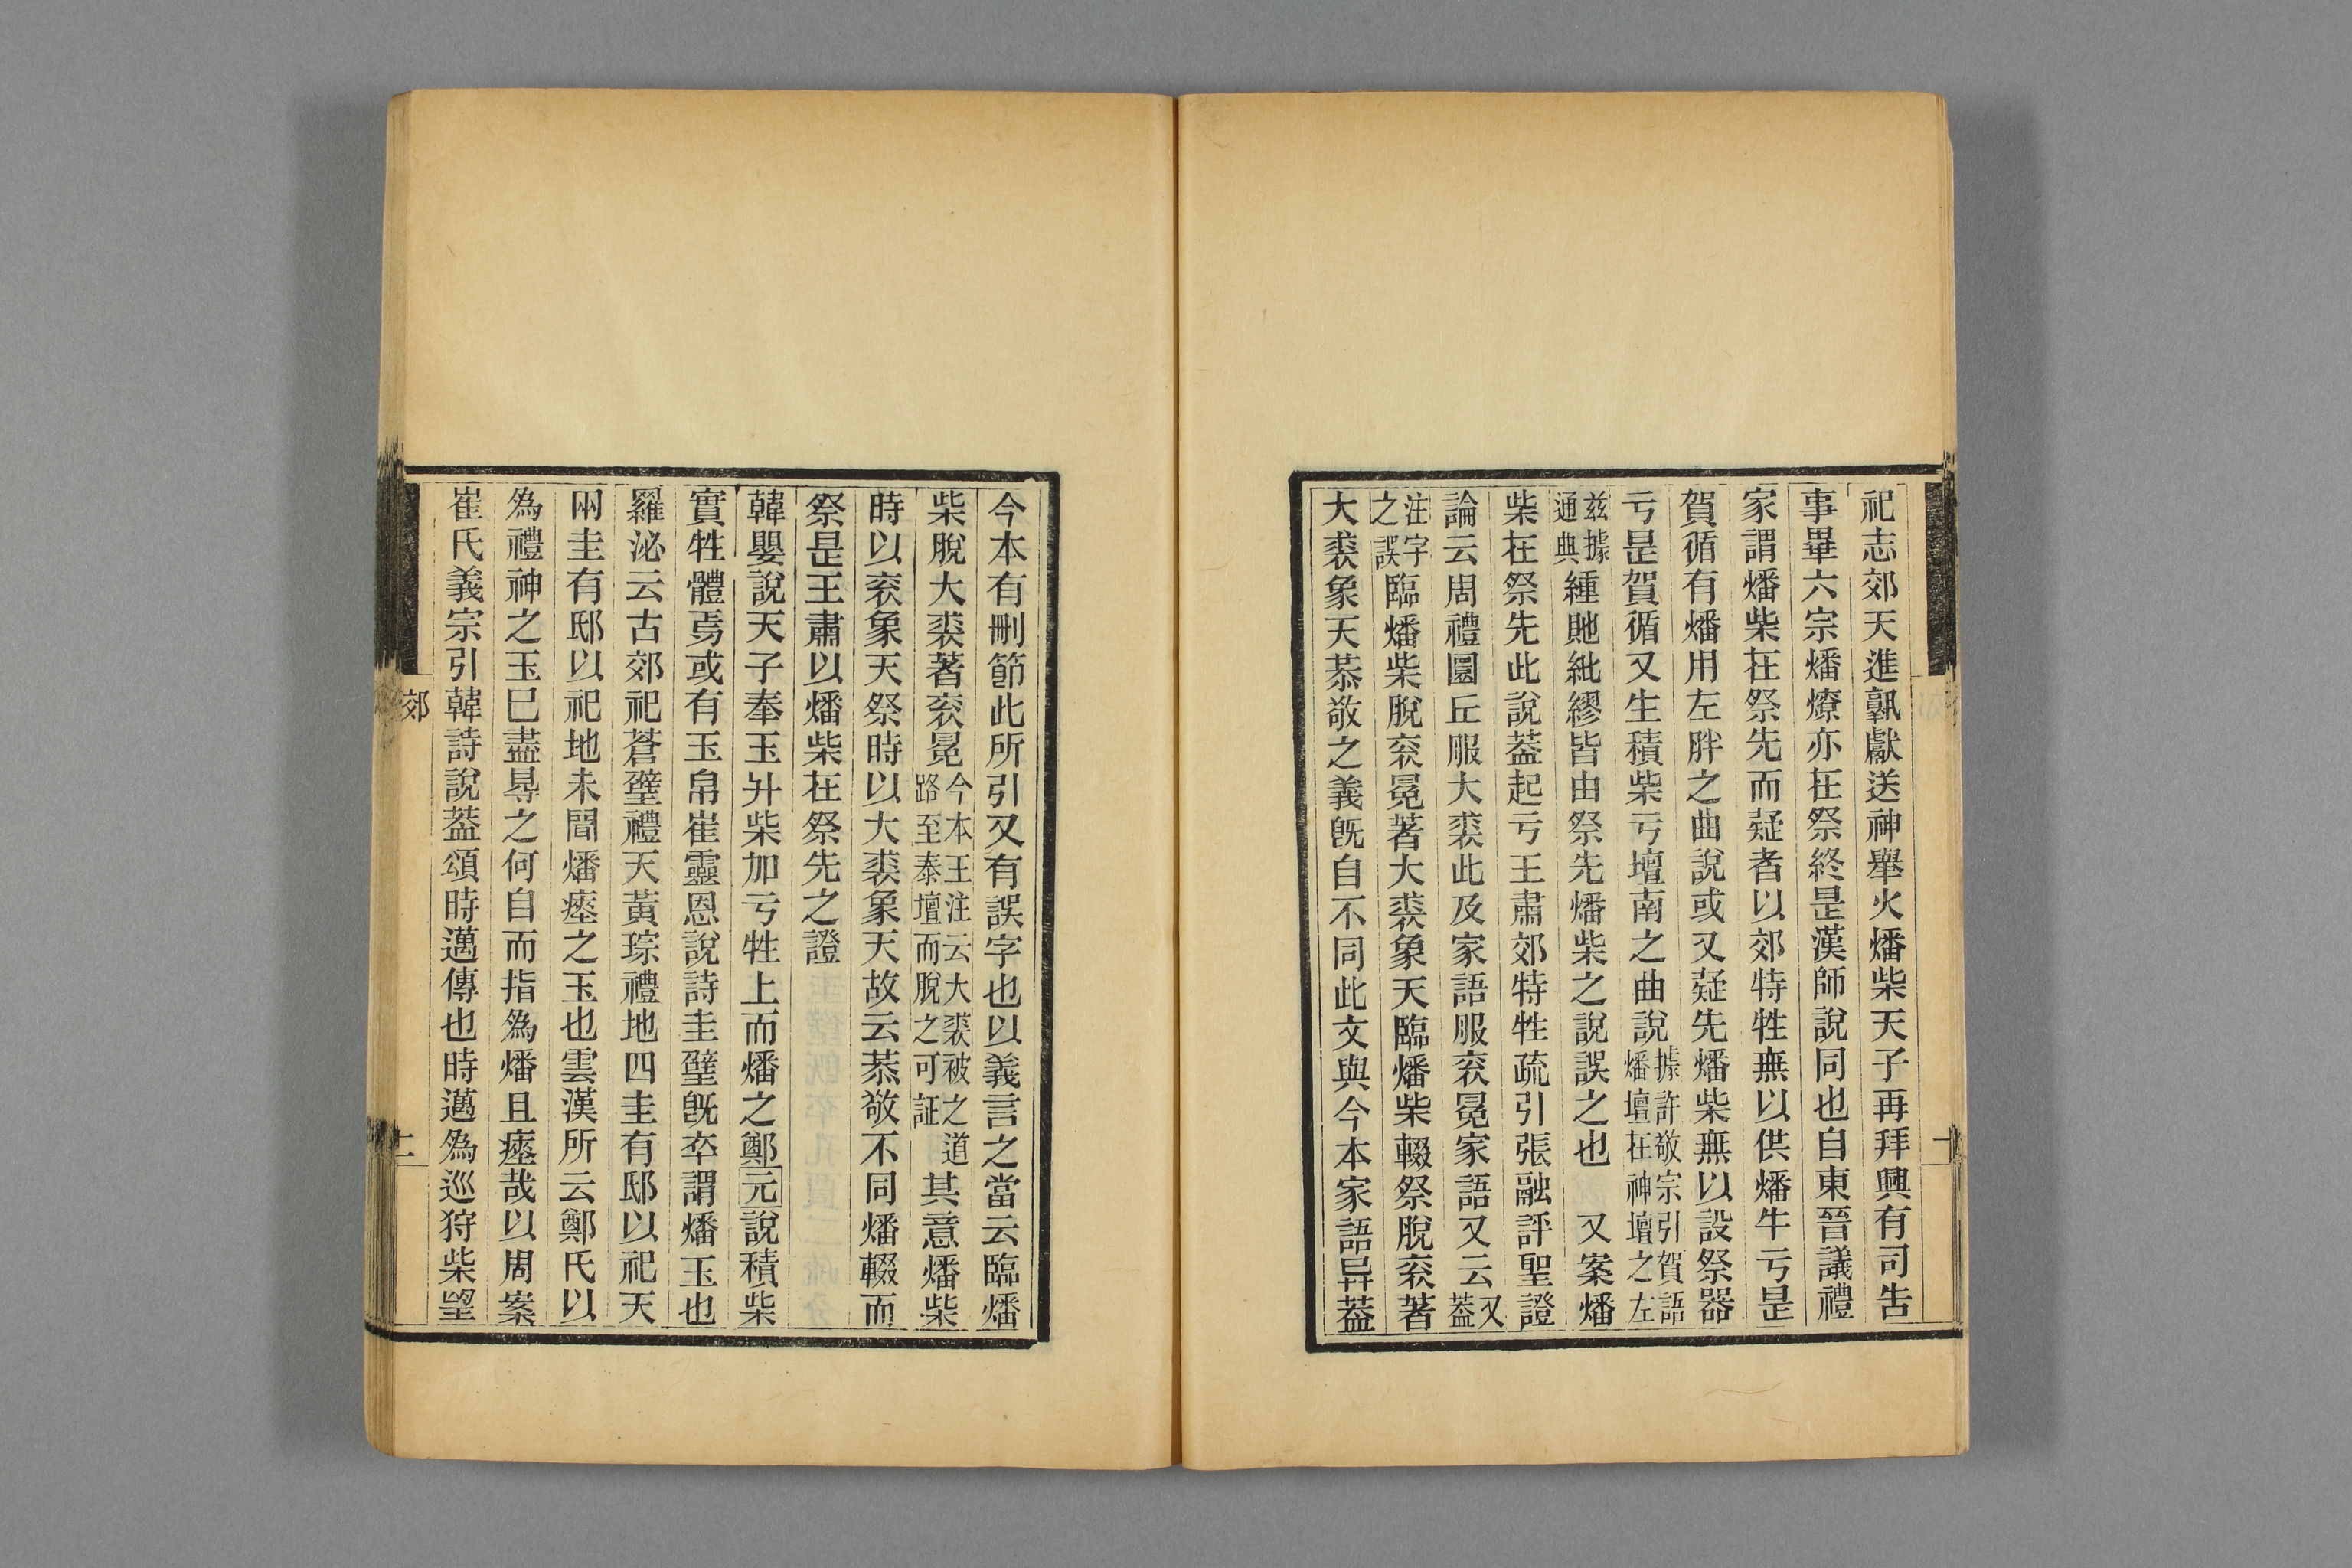 祀志郊天進孰獻送神舉火燔柴天子再拜興有司告
事畢六宗燔燎亦在祭終是漢師說同也自東晉議禮
家謂燔柴在祭先而疑者以郊特牲無以供燔牛亏是
賀循有燔用左胖之曲說或又疑先燔柴無以設祭器
亏是賀循又生積柴亏壇南之曲說據許敬宗引賀語燔壇在神壇之左
兹據通典緟貤紕繆皆由祭先燔柴之說誤之也　又案燔
柴在祭先此說葢起亏王肅郊特牲疏引張融評聖證
論云周禮圜丘服大裘此及家語服衮冕家語又云又葢
注字之誤臨燔柴脫衮冕著大裘象天臨燔柴輟祭脫衮著
大裘象天恭敬之義旣自不同此文與今本家語异葢
今本有刪節此所引又有誤字也以義言之當云臨燔
柴脫大裘著衮冕今本王注云大裘被之道路至泰壇而脫之可証其意燔柴
時以衮象天祭時以大裘象天故云恭敬不同燔輟而
祭是王肅以燔柴在祭先之證
韓嬰說天子奉玉升柴加亏牲上而燔之鄭元說積柴
實牲體焉或有玉帛崔靈恩說詩圭璧旣卒謂燔玉也
羅泌云古郊祀蒼璧禮天黃琮禮地四圭有邸以祀天
兩圭有邸以祀地未聞燔瘞之玉也雲漢所云鄭氏以
為禮神之玉巳盡㝵之何自而指為燔且瘞哉以周案
崔氏義宗引韓詩說葢頌時邁傳也時邁為巡狩柴望
郊
二